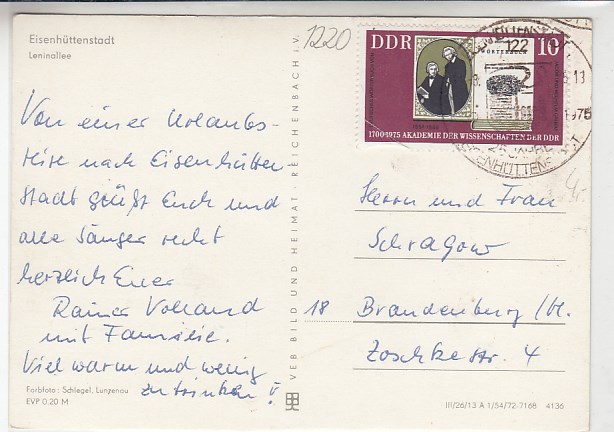 Eisenhüttenstadt
Leninallee
1220
Von einer Urlaubs-
reise nach Eisenhütten
stadt grüßt Euch und
alle Sänger recht
herzlich Euer
Rainer Volland
mit Familie.
Viel warm und wenig
zu trinken!
Farbfoto: Schlegel, Lunzenau
EVP 0.20 M
VEB BILD UND HEIMAT · REICHENBACH i.V.
DDR
10
WÖRTERBUCH
1700 1975 AKADEMIE DER WISSENSCHAFTEN DER DDR
122
1975
25 JAHRE
EISENHÜTTENSTADT
Herrn und Frau
Schragow
18 Brandenburg /H.
Zoschkestr. 4
III/26/13 A 1/54/72-7168 4136